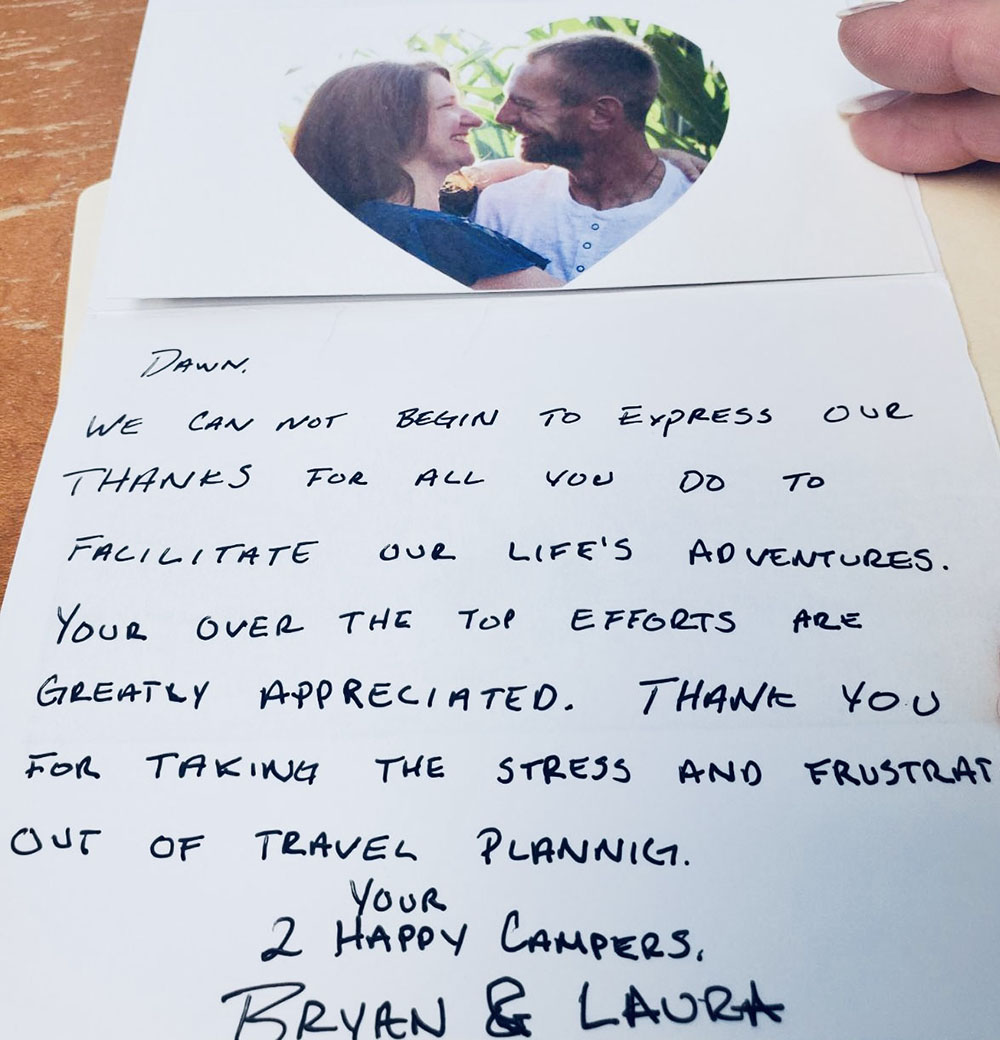 DAWN.
WE CAN NOT BEGIN TO EXPRESS OUR
THANKS FOR ALL YOU DO TO
FACILITATE OUR LIFE'S ADVENTURES.
YOUR OVER THE TOP EFFORTS ARE
GREATLY APPRECIATED. THANK YOU
FOR TAKING THE STRESS AND FRUSTRAT
OUT OF TRAVEL PLANNIG.
YOUR
2 HAPPY CAMPERS.
BRYAN & LAURA